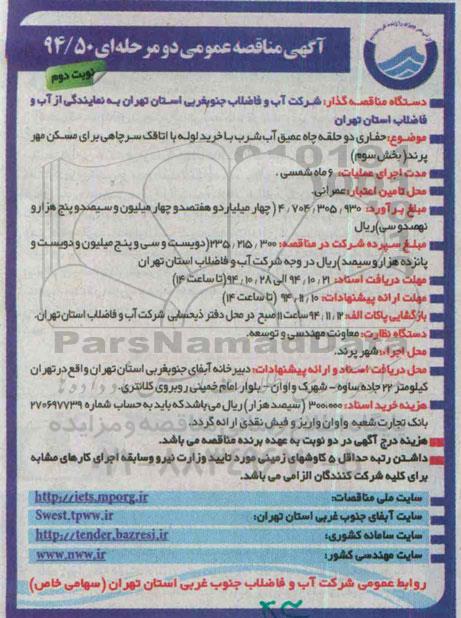 آگهی مناقصه عمومی دو مرحله‌ای ۹۴/۵۰
نوبت دوم
دستگاه مناقصه گذار: شرکت آب و فاضلاب جنوبغربی استان تهران به نمایندگی از آب و
فاضلاب استان تهران
موضوع: حفاری دو حلقه چاه عمیق آب شرب با خرید لوله با اتاقک سرچاهی برای مسکن مهر
پرند( بخش سوم)
مدت اجرای عملیات: ۶ ماه شمسی .
محل تامین اعتبار: عمرانی.
مبلغ برآورد: ۴/۷۰۴/۳۰۵/۹۳۰ ( چهار میلیارد و هفتصد و چهار میلیون و سیصد و پنج هزار و
نهصد و سی) ریال
مبلغ سپرده شرکت در مناقصه: ۲۳۵/۲۱۵/۳۰۰( دویست و سی و پنج میلیون و دویست و
پانزده هزار و سیصد) ریال در وجه شرکت آب و فاضلاب استان تهران
مهلت دریافت اسناد: ۹۴/۱۰/۲۱ الی ۹۴/۱۰/۲۸ (تا ساعت ۱۴)
مهلت ارائه پیشنهادات: ۹۴/۱۱/۱۰ (تا ساعت ۱۴)
بازگشایی پاکات الف: ۹۴/۱۱/۱۲ ساعت ۱۱ صبح در محل دفتر ذیحسابی شرکت آب و فاضلاب استان تهران.
دستگاه نظارت: معاونت مهندسی و توسعه.
محل اجرا: شهر پرند.
محل دریافت اسناد و ارائه پیشنهادات: دبیرخانه آبفای جنوبغربی استان تهران واقع در تهران
کیلومتر ۲۲ جاده ساوه - شهرک واوان - بلوار امام خمینی روبروی کلانتری.
هزینه خرید اسناد: ۳۰۰،۰۰۰ ( سیصد هزار) ریال می باشد که باید به حساب شماره ۲۷۰۶۹۷۷۳۹
بانک تجارت شعبه واوان واریز و فیش نقدی ارائه گردد.
هزینه درج آگهی در دو نوبت به عهده برنده مناقصه می باشد.
داشتن رتبه حداقل ۵ کاوشهای زمینی مورد تایید وزارت نیرو و سابقه اجرای کارهای مشابه
برای کلیه شرکت کنندگان الزامی می باشد.
سایت ملی مناقصات: http://iets.mporg.ir
سایت آبفای جنوب غربی استان تهران: Swest.tpww.ir
سایت سامانه کشوری: http://tender.bazresi.ir
سایت مهندسی کشور: www.nww.ir
روابط عمومی شرکت آب و فاضلاب جنوب غربی استان تهران (سهامی خاص)
ParsNamadData